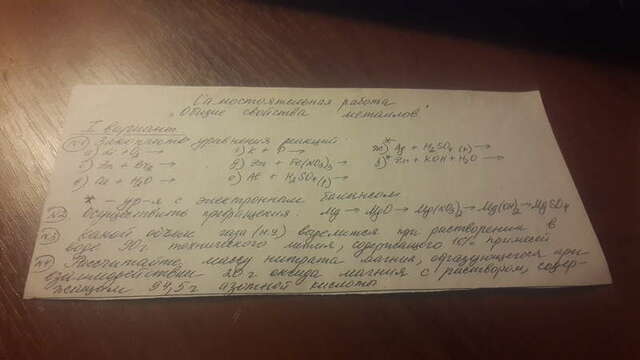 Самостоятельная работа
"Общие свойства металлов"
I вариант
№1 Закончите уравнения реакций:
а) + O₂ → г) K + → ж)* Ag + H₂SO₄ (к) →
б) Zn + Br₂ → д) Zn + Fe(NO₃)₃ → з)* Zn + KOH + H₂O →
в) + H₂O → е) Al + H₂SO₄ (р) →
* - ур-я с электронным балансом
№2 Осуществить превращения: Mg → MgO → Mg(NO₃)₂ → Mg(OH)₂ → MgSO₄
№3 Какой объем газа (н.у) выделится при растворении в
воде 90г технического лития, содержащего 10% примесей
№4 Рассчитайте массу нитрата магния, образующегося при
взаимодействии 20г оксида магния с раствором, содер-
жащем 94,5г азотной кислоты